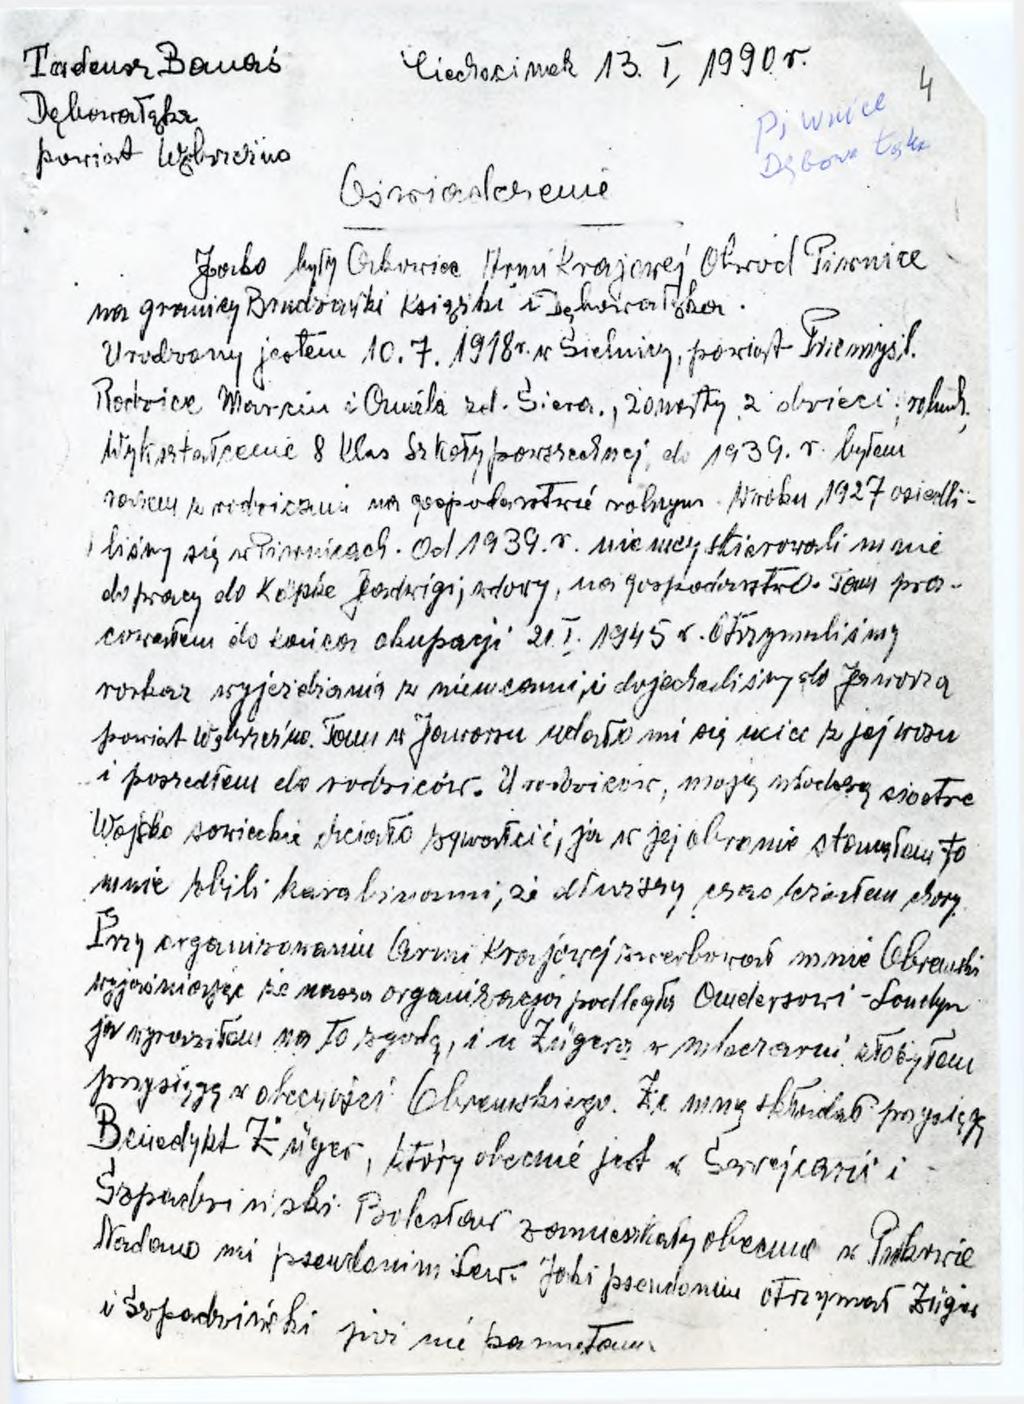 Tadeusz Banaś
Ciechocinek 13. I, 1990 r.
4
Dębowałąka
powiat Wąbrzeźno
Piwnice
Dębowa Łąka
Oświadczenie
Jako były Członek Armi Krajowej Obwód Piwnice
na granicy Brudzawki Książki i Dębowałąka.
Urodzony jestem 10.7.1918 r. w Sielnicy, powiat Przemyśl.
Rodzice Marcin i Aniela zd. Siera., żonaty 2 dzieci, rolnik,
Wykształcenie 8 klas Szkoły powszechnej, do 1939. r. byłem
razem z rodzicami na gospodarstwie rolnym. W roku 1927 osiedli-
liśmy się w Piwnicach. Od 1939. r. niemcy skierowali mnie
do pracy do Köpke Jadwigi, wdowy, na gospodarstwo. Tam pra-
cowałem do końca okupacji 20.I.1945 r. Otrzymaliśmy
rozkaz wyjeżdżania z niemcami, i dojechaliśmy do Jaworza
powiat Wąbrzeźno. Tam w Jaworzu udało mi się uciec z jej wozu
i poszedłem do rodziców. U rodziców, moją młodszą siostrę
Wojsko sowieckie chciało zgwałcić, ja w jej obronie stanąłem to
mnie zbili karabinami, że dłuższy czas leżałem chory.
Przy organizowaniu Armi Krajowej zwerbował mnie Obremski
wyjaśniając że nasza organizacja podlega Andersowi - Londyn
ja wyraziłem na to zgodę, i u Zügera w mleczarni złożyłem
przysięgę w obecności Obremskiego. Ze mną składał przysięgę
Benedykt Züger, który obecnie jest w Szwejcarii i
Szpadziński Bolesław zamieszkały obecnie w
Nadano mi pseudonim Lew. Jaki pseudonim otrzymał Züger
i Szpadziński już nie pamiętam